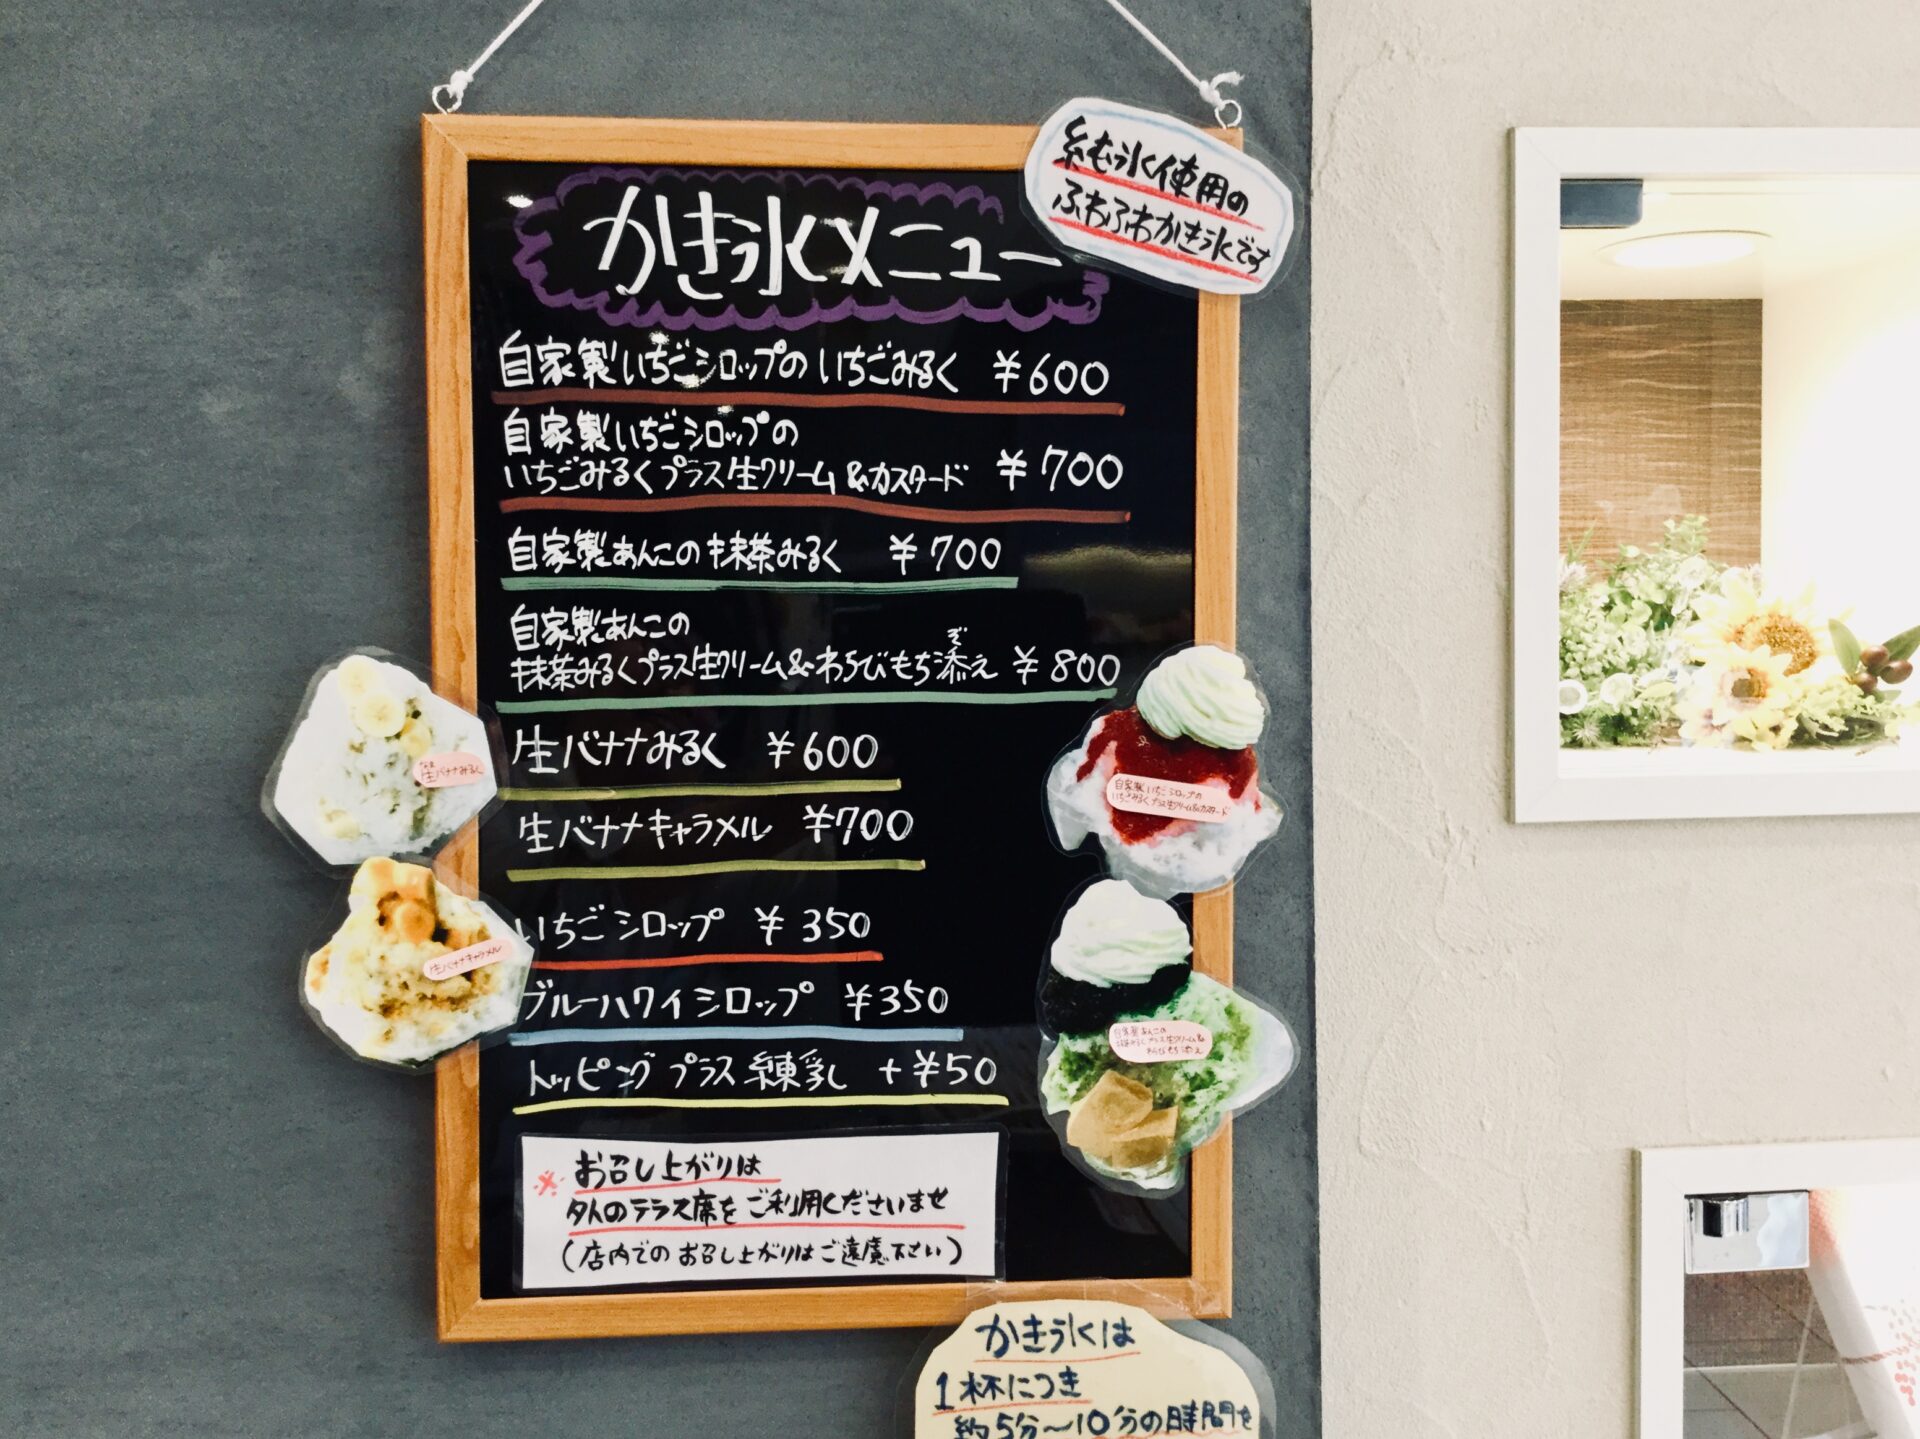 純氷使用の
ふわふわかき氷です
かき氷メニュー
自家製いちごシロップのいちごみるく ¥600
自家製いちごシロップの
いちごみるくプラス生クリーム&カスタード ¥700
自家製あんこの抹茶みるく ¥700
自家製あんこの
抹茶みるくプラス生クリーム&わらびもち添え ¥800
ぞ
生バナナみるく ¥600
生バナナキャラメル ¥700
いちごシロップ ¥350
ブルーハワイシロップ ¥350
トッピング プラス練乳 +¥50
生バナナみるく
生バナナキャラメル
自家製いちごシロップの
いちごみるくプラス生クリーム&カスタード
自家製あんこの
抹茶みるくプラス生クリーム&
わらびもち添え
※お召し上がりは
外のテラス席をご利用くださいませ
(店内でのお召し上がりはご遠慮下さい)
かき氷は
1杯につき
約5分〜10分の時間を